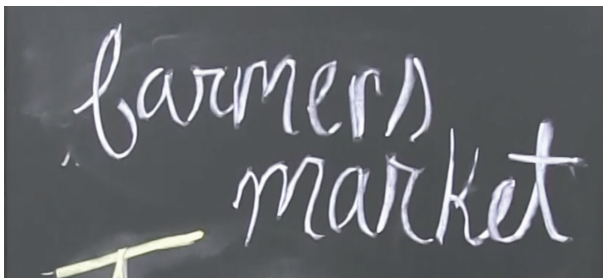 farmers
market